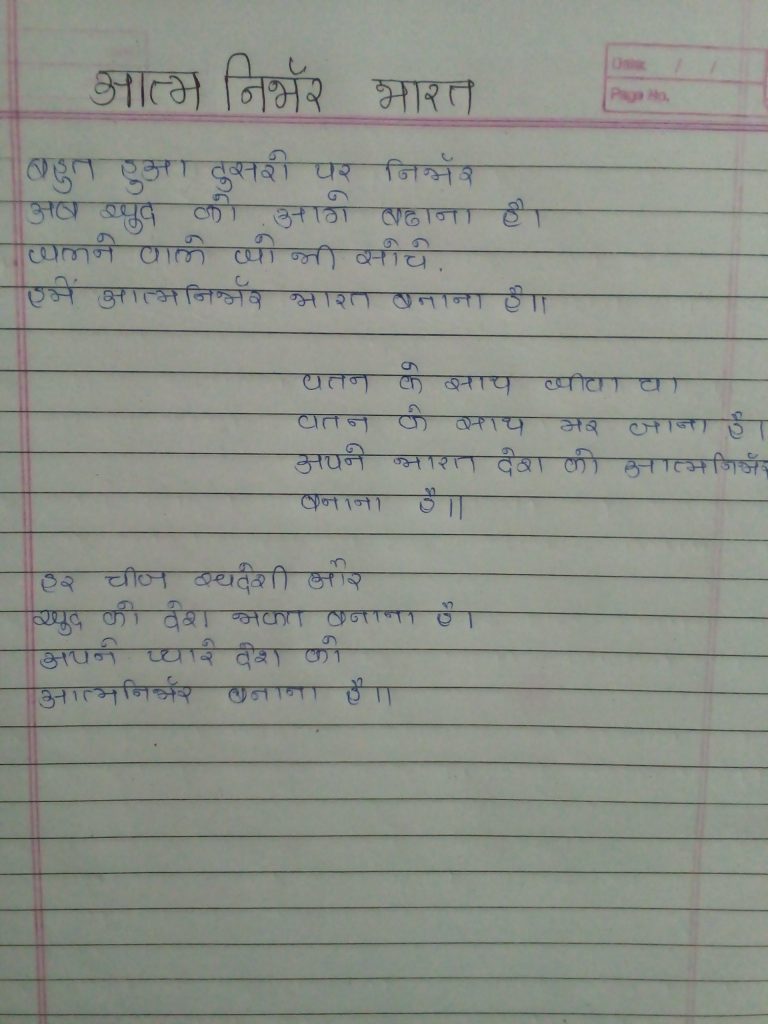 Date / /
Page No.
आत्म निर्भर भारत
बहुत हुआ दुसरो पर निर्भर
अब खुद को आगे बढाना है।
जलने वाले जो भी सोचे,
हमें आत्मनिर्भर भारत बनाना है॥
वतन के साथ था
वतन के साथ मर जाना है।
अपने भारत देश को आत्मनिर्भर
बनाना है॥
हर चीज स्वदेशी और
खुद को देश भक्त बनाना है।
अपने प्यारे देश को
आत्मनिर्भर बनाना है॥